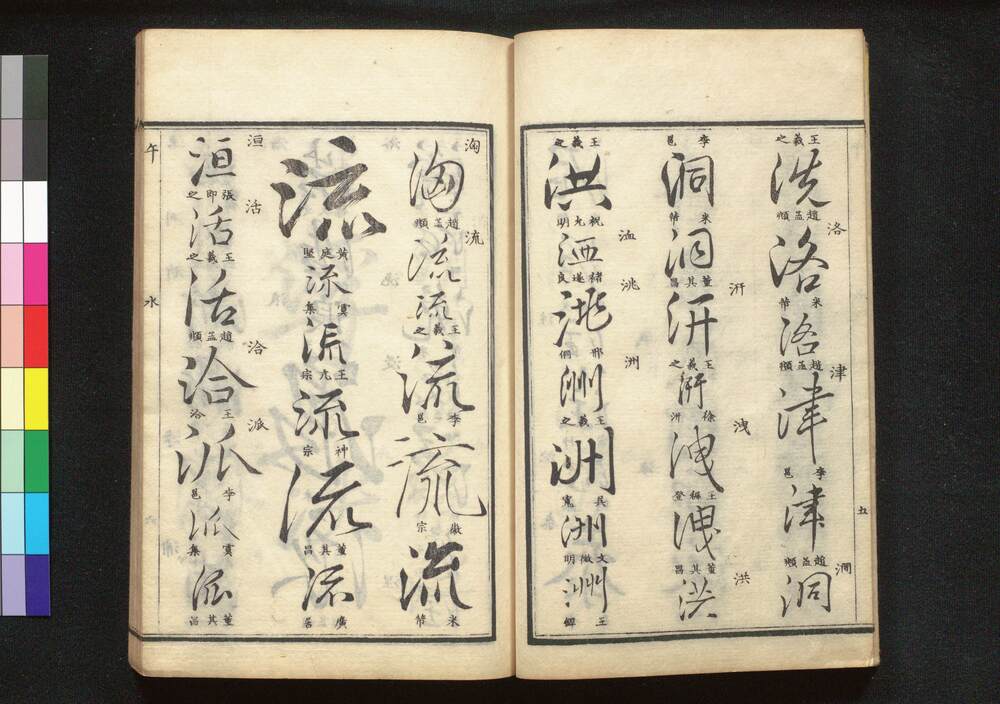 五
洛 津
王羲之 洗 趙孟頫 洛 米芾 洛 趙孟頫 津 李邕 津 趙孟頫 洞
汧 洩 洪
李邕 洞 米芾 洞 董其昌 汧 王羲之 汧 徐 洩 王穉登 洩 董其昌 洪
洫 洮 洲
王羲之 洪 祝允明 洫 褚遂良 洮 邢侗 洲 王羲之 洲 吳寬 洲 文徵明 洲 王鐸
洶 流
洶 趙孟頫 流 流 王羲之 流 李邕 流 徽宗 流 米芾
流 黃庭堅 流 虞集 流 王 宗 流 神宗 流 董其昌 流
洹 活 洽 派
洹 張即之 活 王羲之 活 趙孟頫 洽 王洽 派 李邕 派 虞集 派 董其昌
午 水